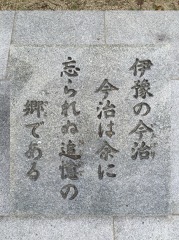 伊豫の今治
今治は余に
忘られぬ追憶の
郷である